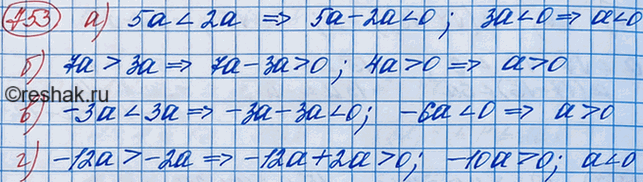 753 а) 5a < 2a ⇒ 5a-2a<0; 3a<0 ⇒ a<0
б) 7a > 3a ⇒ 7a-3a>0; 4a>0 ⇒ a>0
©reshak.ru
в) -3a < 3a ⇒ -3a-3a<0; -6a<0 ⇒ a>0
г) -12a > -2a ⇒ -12a+2a>0; -10a>0; a<0